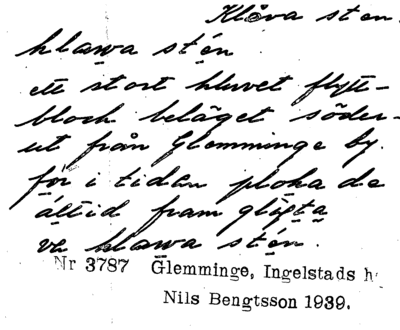 Klåva sten.
klawa stén
ett stort kluvet flytt-
block beläget söder-
ut från Glemminge by.
för i tidan ploka de
áltid fram glïgta
ve klawa stén.
Nr 3787 Glemminge, Ingelstads h
Nils Bengtsson 1939.